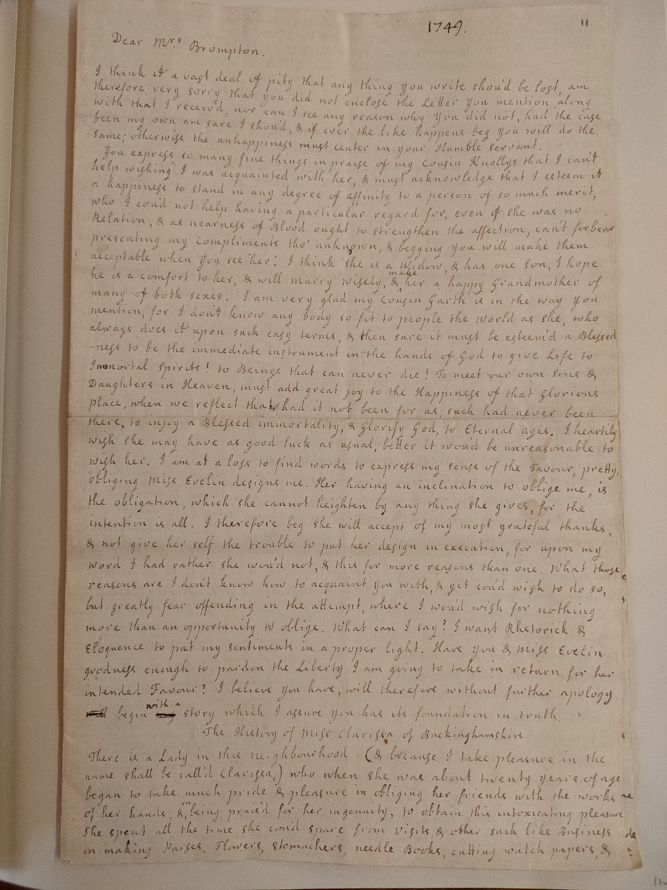 1749.
11
Dear Mrs Brompton.
I think it a vast deal of pity that any thing you write shou'd be lost, am
therefore very sorry that you did not enclose the Letter you mention along
with that I receiv'd, nor can I see any reason why you did not, had the case
been my own am sure I shou'd, & if ever the like happens beg you will do the
same; otherwise the unhappiness must center in your Humble Servant.
You express so many fine things in praise of my Cousin Knollys that I can't
help wishing I was acquainted with her, & must acknowledge that I esteem it
a happiness to stand in any degree of affinity to a person of so much merit,
who I cou'd not help having a particular regard for, even if she was no
Relation, & as nearness of Blood ought to strengthen the affection, can't forbear
presenting my Compliments tho' unknown, & begging you will make them
acceptable when you see her. I think she is a Widow, & has one Son, I hope
he is a comfort to her, & will marry wisely, & make her a happy Grandmother of
many of both sexes. I am very glad my Cousin Garth is in the way you
mention, for I don't know any body so fit to people the world as she, who
always does it upon such easy terms, & then sure it must be esteem'd a Blessed
-ness to be the immediate instrument in the hands of God to give Life to
Immortal Spirits! to Beings that can never die! To meet our own Sons &
Daughters in Heaven, must add great joy to the Happiness of that Glorious
place, when we reflect that had it not been for us, such had never been
there, to injoy a Blessed immortality, & Glorify God, to Eternal ages. I heartily
wish she may have as good luck as usual, better it wou'd be unreasonable to
wish her. I am at a loss to find words to express my sense of the Favour, pretty,
obliging Miss Evelin designs me. Her having an inclination to oblige me, is
the obligation, which she cannot heighten by any thing she gives, for the
intention is all. I therefore beg she will accept of my most grateful thanks,
& not give her self the trouble to put her design in execution, for upon my
word I had rather she wou'd not, & this for more reasons than one. What those
reasons are I don't know how to acquaint you with, & yet cou'd wish to do so,
but greatly fear offending in the attempt, where I wou'd wish for nothing
more than an opportunity to oblige. What can I say? I want Rhetorick &
Eloquence to put my sentiments in a proper light. Have you & Miss Evelin
goodness enough to pardon the Liberty I am going to take in return for her
intended Favour? I believe you have, will therefore without further apology
begin with story which I assure you has its foundation in truth.
The History of Miss Clarissa of Buckinghamshire
There is a Lady in this neighbourhood (& because I take pleasure in the
name shall be call'd Clarissa,) who when she was about twenty years of age
began to take much pride & pleasure in obliging her friends with the works
of her hands, & being prais'd for her ingenuity, to obtain this intoxicating pleasure
She spent all the time she cou'd spare from Visits & other such like Business
in making Purses, Flowers, stomachers, needle Books, cutting watch papers, &